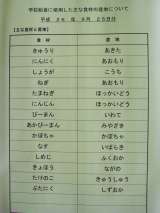 学校給食に使用した主な食材の産地について
平成26年9月25日分
【主な食材の産地】
食材 産地
きゅうり あきた
にんにく あおもり
しょうが こうち
ねぎ あおもり
たまねぎ ほっかいどう
にんじん ほっかいどう
ぴーまん いわて
あかぴーまん みやざき
かぼちゃ かぼちゃ
なす いばらき
しめじ ふくおか
きょほう ながの
たけのこ きゅうしゅう
ぶたにく しずおか